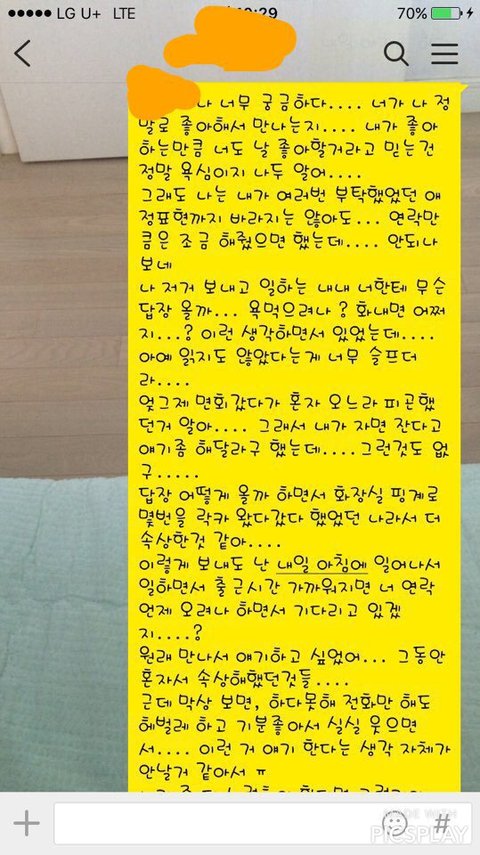 LG U+ LTE :29 70%
나 너무 궁금하다.... 너가 나 정
말로 좋아해서 만나는지.... 내가 좋아
하는만큼 너도 날 좋아할거라고 믿는건
정말 욕심이지 나두 알어....
그래도 나는 내가 여러번 부탁했었던 애
정표현까지 바라지는 않아도... 연락만
큼은 조금 해줬으면 했는데.... 안되나
보네
나 저거 보내고 일하는 내내 너한테 무슨
답장 올까... 욕먹으려나 ? 화내면 어쩌
지...? 이런 생각하면서 있었는데....
아예 읽지도 않았다는게 너무 슬프더
라....
엊그제 면회갔다가 혼자 오느라 피곤했
던거 알아.... 그래서 내가 자면 잔다고
얘기좀 해달라구 했는데.... 그런것도 없
구.....
답장 어떻게 올까 하면서 화장실 핑계로
몇번을 락카 왔다갔다 했었던 나라서 더
속상한것 같아....
이렇게 보내도 난 내일 아침에 일어나서
일하면서 출근시간 가까워지면 너 연락
언제 오려나 하면서 기다리고 있겠
지....?
원래 만나서 얘기하고 싶었어... 그동안
혼자서 속상해했던것들....
근데 막상 보면, 하다못해 전화만 해도
헤벌레 하고 기분좋아서 실실 웃으면
서.... 이런 거 얘기 한다는 생각 자체가
안날거 같아서 ㅠ
#
MADE WITH
PICSPLAY